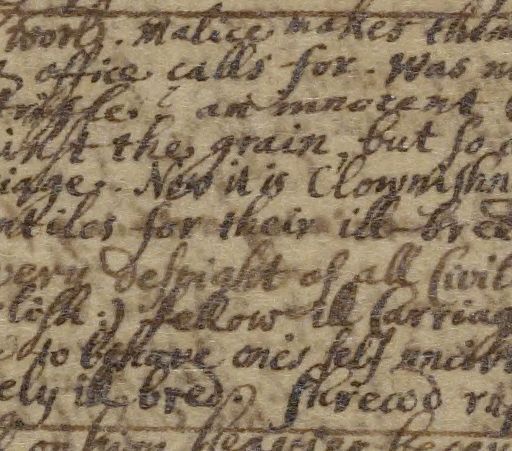 work. Malice makes them
office calls for. Was n
trifle? an innocent
inst the grain, but so
iage. Now it is Clownishn
ntiles for their ill bree
very despight of all Civil
lish:) fellow ill Carriag
to behave one's self unciv
ely ill bred. shrewd